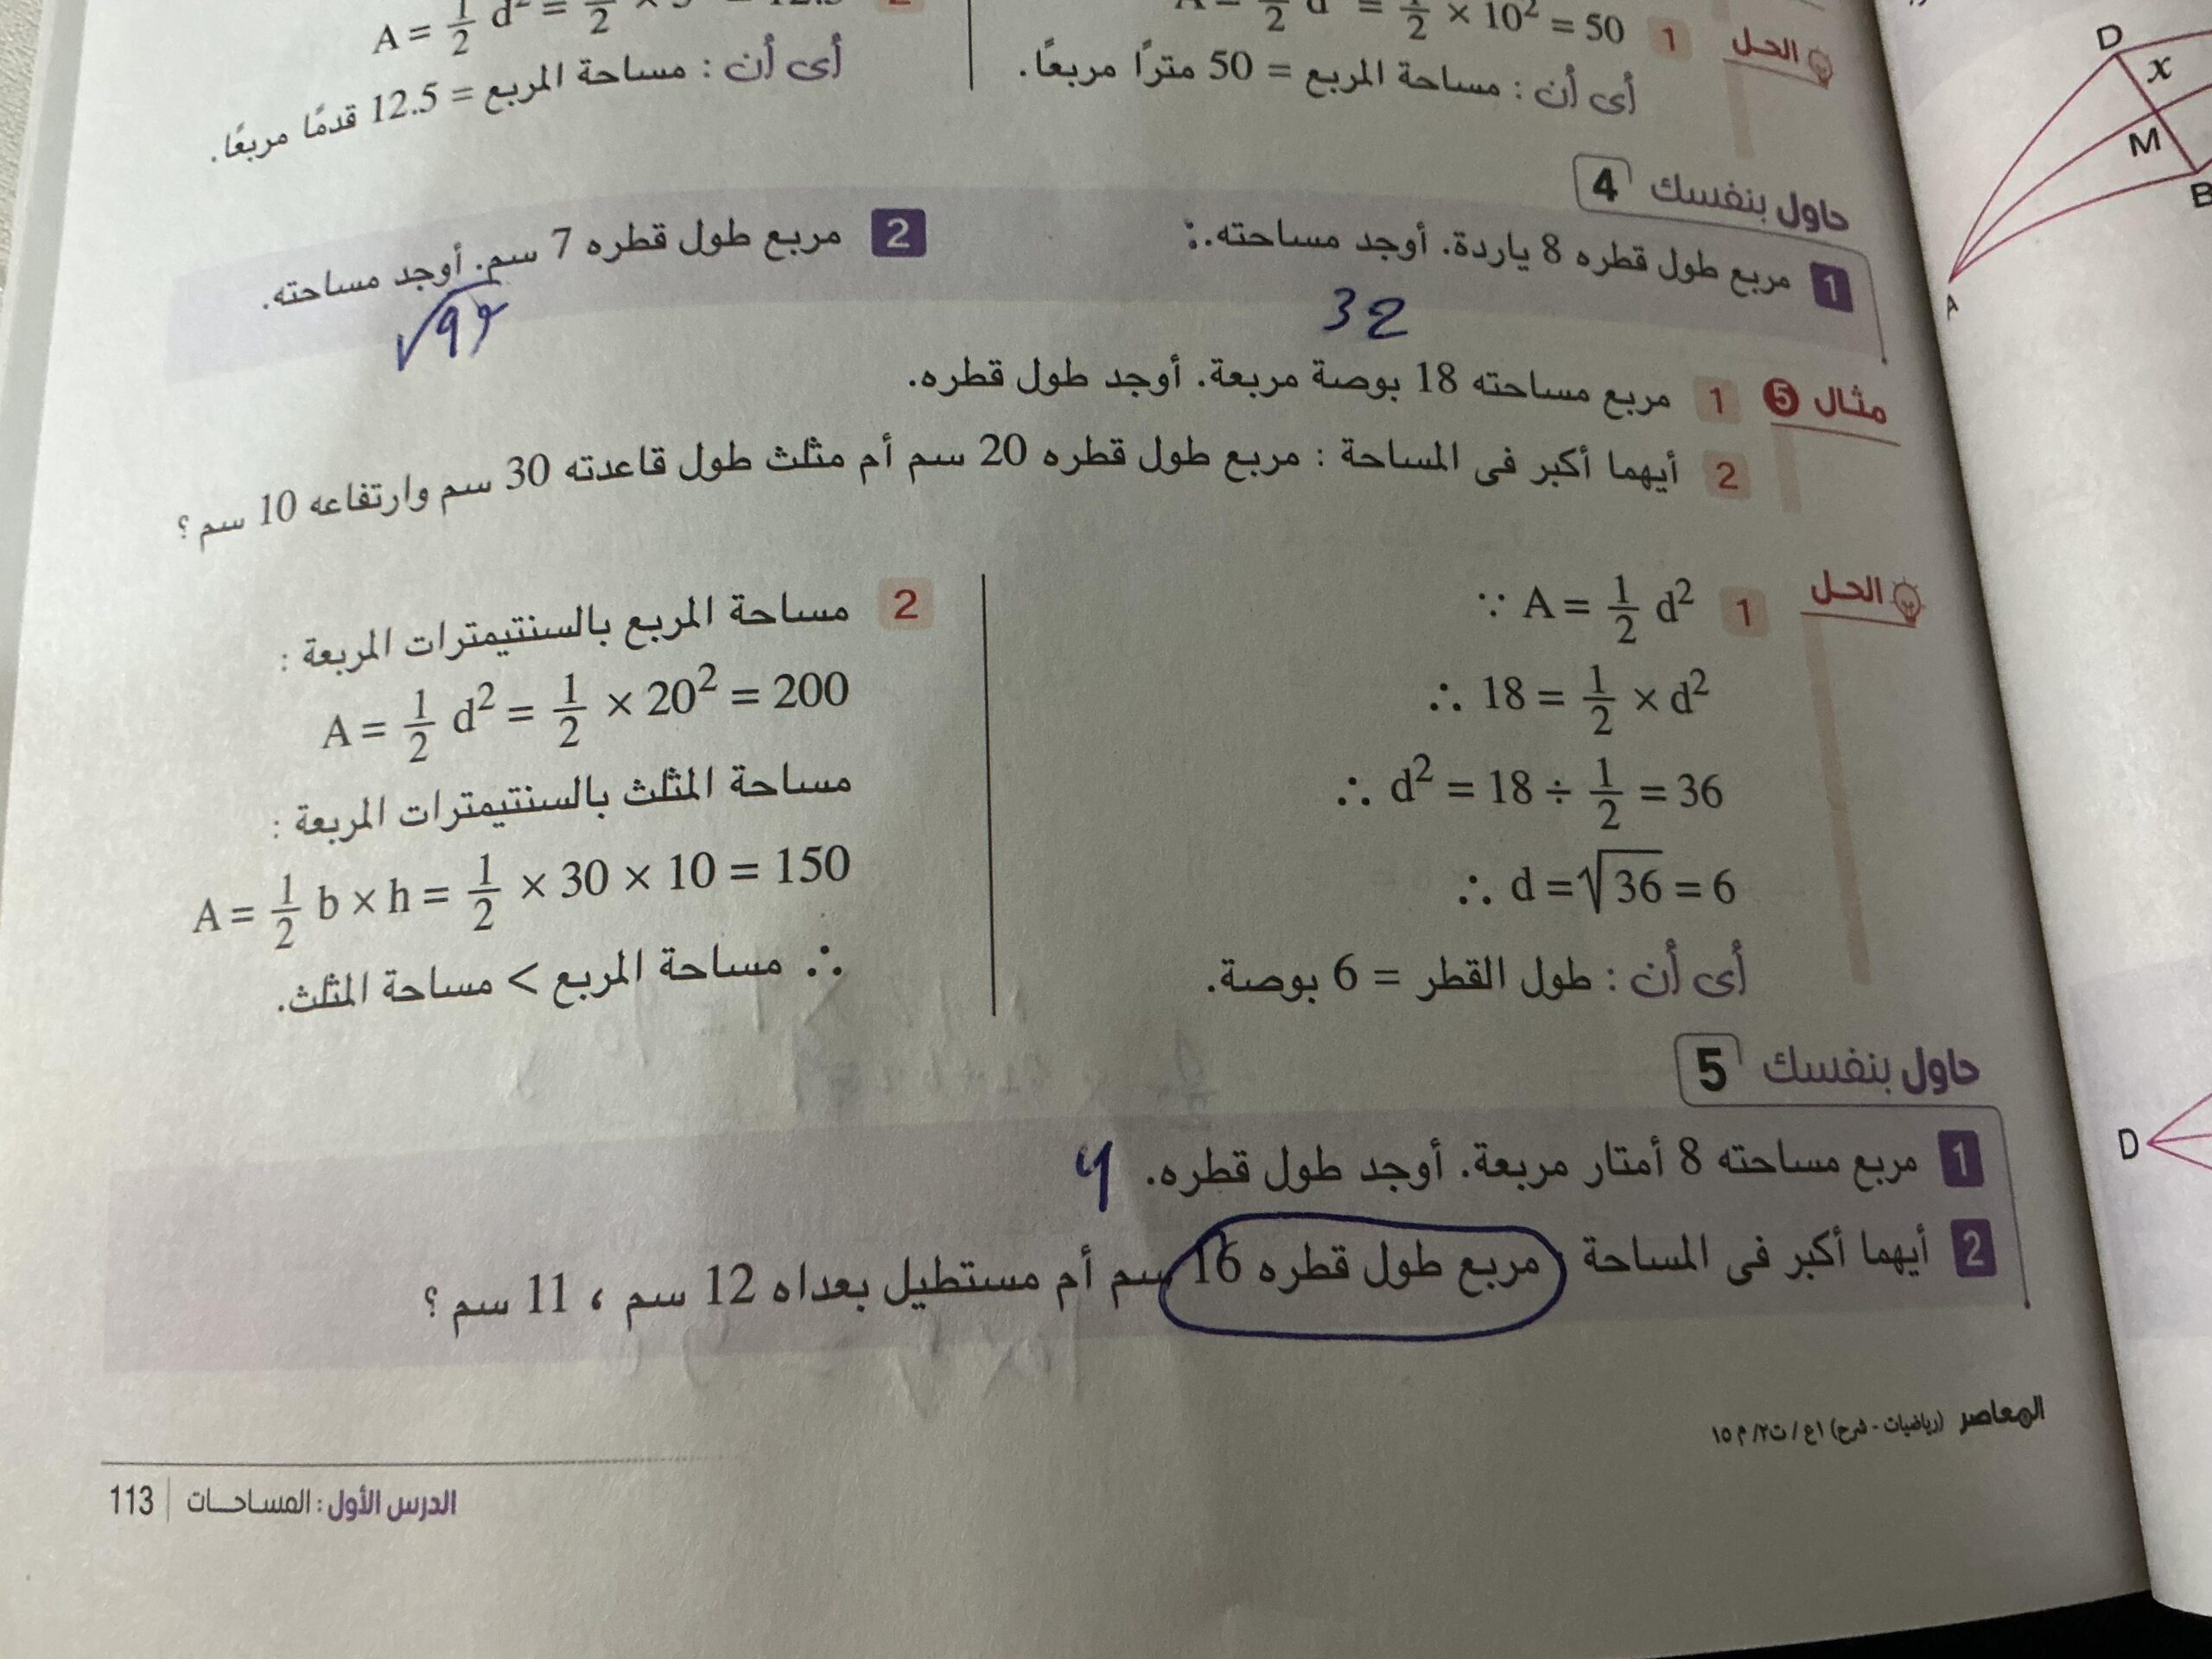 الحل 1 = 1/2 × 10² = 50
أى أن : مساحة المربع = 50 مترًا مربعًا.
A = 1/2 d² =
أى أن : مساحة المربع = 12.5 قدمًا مربعًا.
حاول بنفسك 4
1 مربع طول قطره 8 ياردة. أوجد مساحته.
32
2 مربع طول قطره 7 سم. أوجد مساحته.
مثال 5 1 مربع مساحته 18 بوصة مربعة. أوجد طول قطره.
2 أيهما أكبر فى المساحة : مربع طول قطره 20 سم أم مثلث طول قاعدته 30 سم وارتفاعه 10 سم ؟
الحل 1 ∵ A = 1/2 d²
∴ 18 = 1/2 × d²
∴ d² = 18 ÷ 1/2 = 36
∴ d = √36 = 6
أى أن : طول القطر = 6 بوصة.
2 مساحة المربع بالسنتيمترات المربعة :
A = 1/2 d² = 1/2 × 20² = 200
مساحة المثلث بالسنتيمترات المربعة :
A = 1/2 b × h = 1/2 × 30 × 10 = 150
∴ مساحة المربع > مساحة المثلث.
حاول بنفسك 5
1 مربع مساحته 8 أمتار مربعة. أوجد طول قطره. 4
2 أيهما أكبر فى المساحة : مربع طول قطره 16 سم أم مستطيل بعداه 12 سم ، 11 سم ؟
المعاصر (رياضيات - شرح) ١ع / ت٢ / م ١٥
الدرس الأول : المساحات | 113
D
x
M
B
A
D